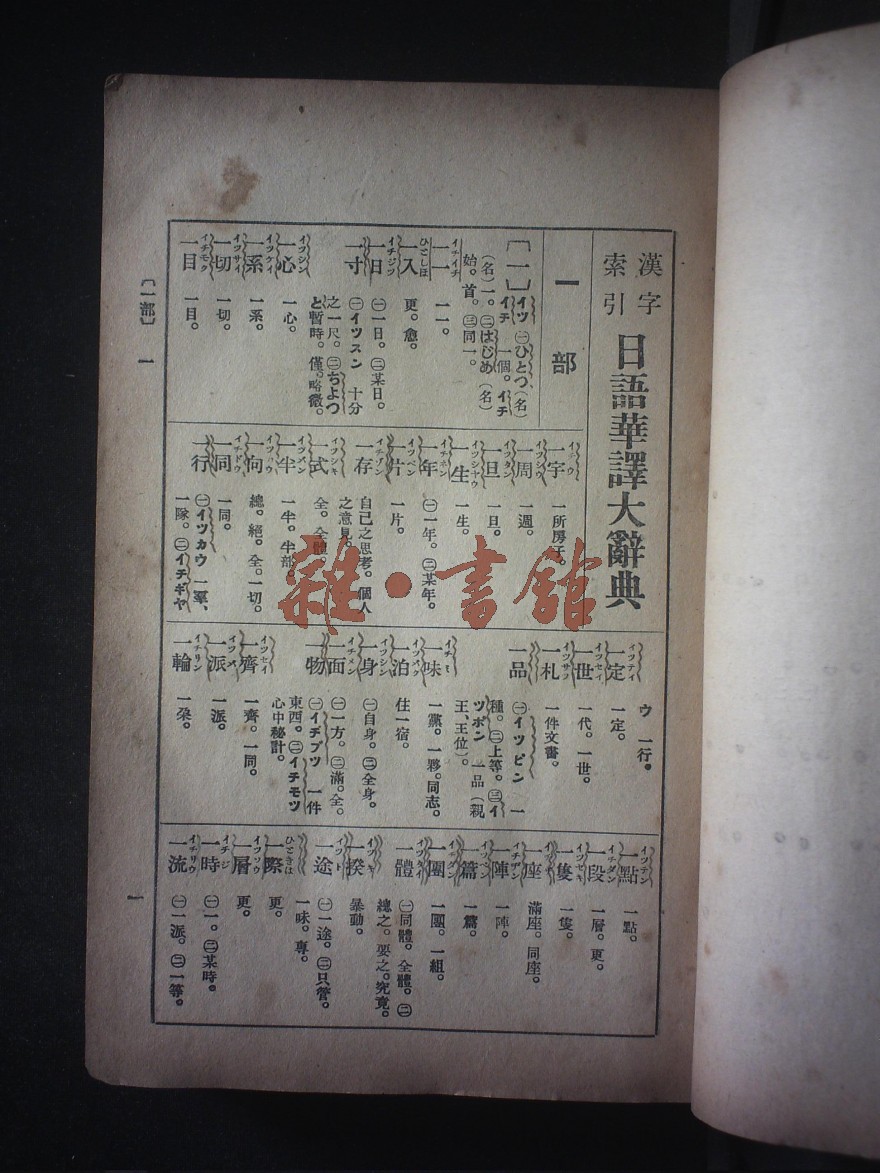 漢字索引
日語華譯大辭典
一部
〔一〕イツ ㊀ひとつ(名)
イチ 一個。イチ
(名)一。㊁はじめ(名)
始。首。㊂同一。
一一 イチイチ 一一。
一入 ひとしほ 更。愈。
一日 イチジツ ㊀一日。㊁某日。
一寸 ㊀イツスン 十分
之一尺。㊁ちよつ
と暫時。僅。略微。
一心 イツシン 一心。
一系 イツケイ 一系。
一切 イツサイ 一切。
一目 イチモク 一目。
一字 イチウ 一所房子。
一周 イツシウ 一週。
一旦 イツタン 一旦。
一生 イツシヤウ 一生。
一年 イチネン ㊀一年。㊁某年。
一片 イツペン 一片。
一存 イチゾン 自己之思考。個人
之意見。
一式 イツシキ 全。全體。
一半 イツパン 一半。半部。
一向 イツカウ 總。絕。全。一切。
一同 イチドウ 一同。
一行 ㊀イツカウ 一羣、
一隊。㊁イチギヤ
ウ 一行。
一定 イツテイ 一定。
一世 イツセイ 一代。一世。
一札 イツサツ 一件文書。
一品 ㊀イツピン 一
種。㊁上等。㊂イ
ツポン 一品(親
王、王位)。
一味 イチミ 一黨。一夥。同志。
一泊 イツパク 住一宿。
一身 イツシン ㊀自身。㊁全身。
一面 イチメン ㊀一方。㊁滿。全。
一物 ㊀イチブツ 一件
東西。㊁イチモツ
心中秘計。
一齊 イツセイ 一齊。一同。
一派 イツパ 一派。
一輪 イチリン 一朶。
一點 イツテン 一點。
一段 イチダン 一層。更。
一隻 イツセキ 一隻。
一座 イチザ 滿座。同座。
一陣 イチヂン 一陣。
一篇 イツペン 一篇。
一團 イチダン 一團。一組。
一體 イツタイ ㊀同體。全體。㊁
總之。要之。究竟。
一揆 イツキ 暴動。
一途 イツト ㊀一途。㊁只管。
一味。專。
一際 ひときは 更。
一層 イツソウ 更。
一時 イチジ ㊀一。㊁某時。
一流 イチリウ ㊀一派。㊁一等。
〔一部〕 一
一
雜·書館